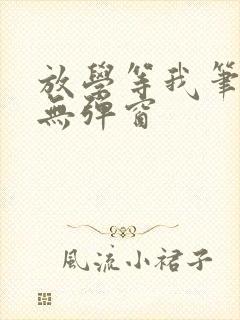 放學等我筆
無彈窗
風流小裙子